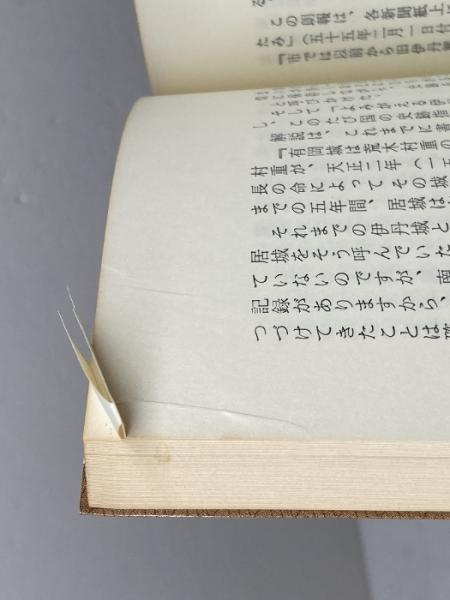 この朗報は、各新聞紙上
たみ』(五十五年二月一日付
『市では以前から旧伊丹
と呼びかけた。
そして『よみがえる伊
し、このたび国の史跡指
解説は、これまでに書
『有岡城は荒木村重の
村重が、天正二年(一五
長の命によってその城
までの五年間、居城は
それまでの伊丹城と
居城をそう呼んでいた
ていないのですが、南
記録がありますから、
つづけてきたことは確